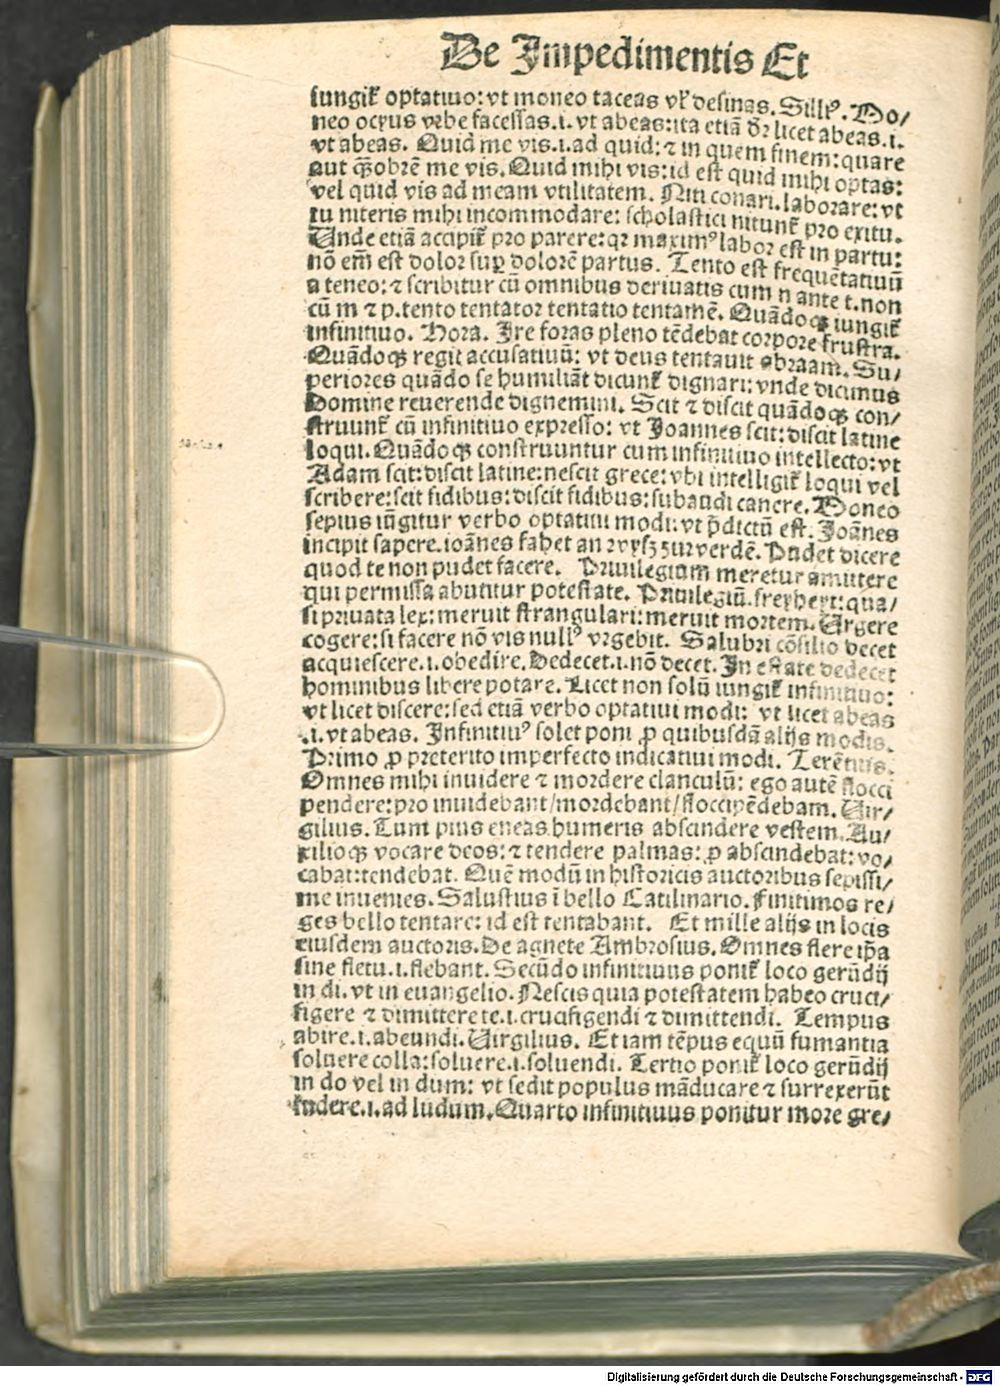 De Impedimentis Et
iungit᷑ optatiuo: vt moneo taceas vt᷑ desinas. Sill⁹. Mo/
neo ocyus vrbe facessas .i. vt abeas: ita etiā dr̄ licet abeas .i.
vt abeas. Quid me vis .i. ad quid: ⁊ in quem finem: quare
aut q̄obrē me vis. Quid mihi vis: id est quid mihi optas:
vel quid vis ad meam vtilitatem. Niti conari. laborare: vt
tu niteris mihi incommodare: scholastici nitunt᷑ pro exitu.
Unde etiā accipit᷑ pro parere: qr maxim⁹ labor est in partu:
nō em̄ est dolor suꝑ dolorē partus. Tento est frequētatiuū
a teneo: ⁊ scribitur cū omnibus deriuatis cum n ante t. non
cū m ⁊ p. tento tentator tentatio tentamē. Quādoqꝫ iungit᷑
infinitiuo. Hora. Ire foras pleno tēdebat corpore frustra.
Quādoqꝫ regit accusatiuū: vt deus tentauit abraam. Su/
periores quādo se humiliāt dicunt᷑ dignari: vnde dicimus
Domine reuerende dignemini. Scit ⁊ discit quādoqꝫ con/
struunt᷑ cū infinitiuo expresso: vt Joannes scit: discit latine
loqui. Quādoqꝫ construuntur cum infinitiuo intellecto: vt
Adam scit: discit latine: nescit grece: vbi intelligit᷑ loqui vel
scribere: scit fidibus: discit fidibus: subaudi canere. Moneo
sepius iūgitur verbo optatiui modi: vt p̄dictū est. Joānes
incipit sapere. ioānes fahet an verdē. Pudet dicere
quod te non pudet facere. Priuilegium meretur amittere
qui permissa abutitur potestate. Priuilegiū. freyheyt: qua/
si priuata lex: meruit strangulari: meruit mortem. Urgere
cogere: si facere nō vis null⁹ vrgebit. Salubri cōsilio decet
acquiescere .i. obedire. Dedecet .i. nō decet. In estate dedecet
hominibus libere potare. Licet non solū iungit᷑ infinitiuo:
vt licet discere: sed etiā verbo optatiui modi: vt licet abeas
.i. vt abeas. Infinitiu⁹ solet poni ꝓ quibusdā alijs modis.
Primo ꝓ preterito imperfecto indicatiui modi. Terētius.
Omnes mihi inuidere ⁊ mordere clanculū: ego autē flocci
pendere: pro inuidebant/mordebant/floccipēdebam. Uir/
gilius. Tum pius eneas humeris abscindere vestem. Au/
xilioqꝫ vocare deos: ⁊ tendere palmas: ꝓ abscindebat: vo/
cabat: tendebat. Quē modū in historicis auctoribus sepissi/
me inuenies. Salustius ī bello Catilinario. Finitimos re/
ges bello tentare: id est tentabant. Et mille alijs in locis
eiusdem auctoris. De agnete Ambrosius. Omnes flere ip̄a
sine fletu .i. flebant. Secūdo infinitiuus ponit᷑ loco gerūdij
in di. vt in euangelio. Nescis quia potestatem habeo cruci/
figere ⁊ dimittere te .i. crucifigendi ⁊ dimittendi. Tempus
abire .i. abeundi. Uirgilius. Et iam tēpus equū fumantia
soluere colla: soluere .i. soluendi. Tertio ponit᷑ loco gerūdij
in do vel in dum: vt sedit populus māducare ⁊ surrexerūt
ludere .i. ad ludum. Quarto infinitiuus ponitur more gre/
Digitalisierung gefördert durch die Deutsche Forschungsgemeinschaft - DFG